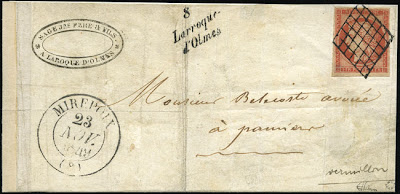 SAGE JNE PERE & FILS
A LAROQUE D'OLMES
8
Larroque-
d'Olmes
MIREPOIX
23
AVR.
1849
(8)
Monsieur Belcoste avoué
à pamiers
vermillon